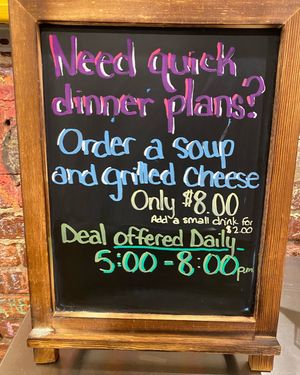 Need quick
dinner plans?
Order a soup
and grilled cheese
Only $8.00
Add a small drink for
$2.00
Deal offered Daily
5:00 - 8:00pm